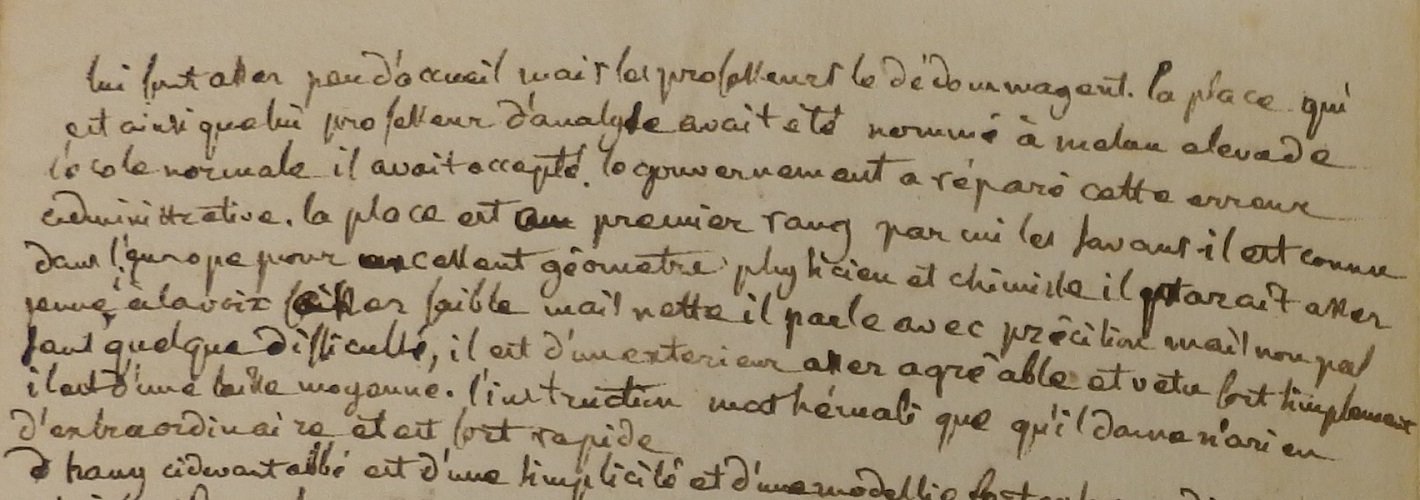 lui font asser peu d'accueil mais les professeurs le dédommagent. la place qui
est ainsi que lui professeur d'analyse avait été nommé à melun eleve de
l'école normale il avait accepté. le gouvernement a réparé cette erreur
administrative. la place est au premier rang parmi les savans il est connu
dans l'europe pour excellent géometre physicien et chimiste il parait asser
jeune, à la voix asser faible mais nette il parle avec précision mais non pas
sans quelque difficulté, il est d'un exterieur asser agréable et vetu fort simplement
il est d'une taille moyenne. l'instruction mathématique qu'il donne n'a rien
d'extraordinaire et est fort rapide
hauy cidevant abbé est d'une simplicité et d'une modestie